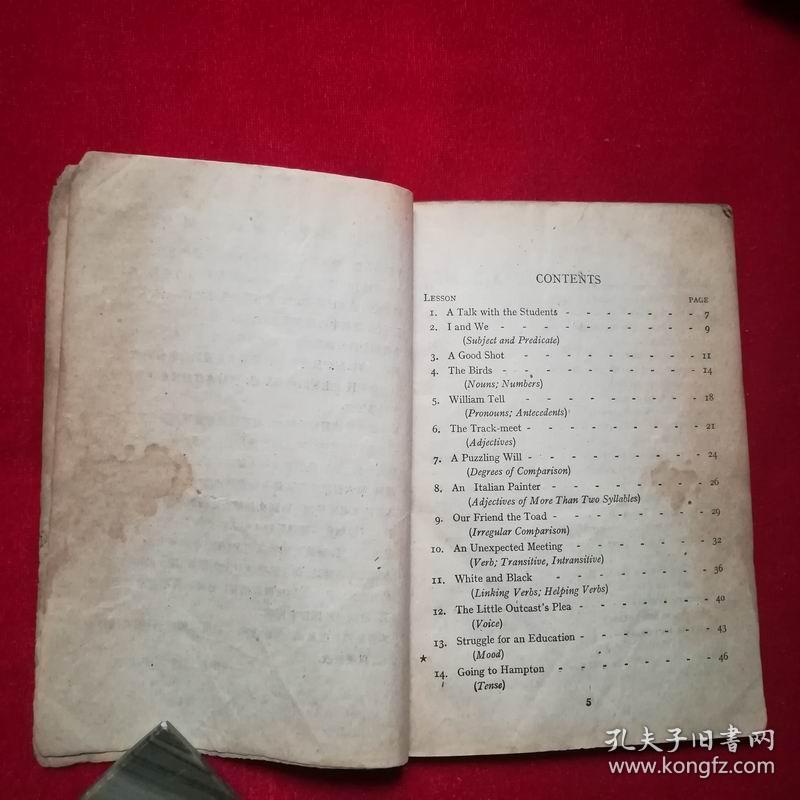 CONTENTS
LESSON PAGE
1. A Talk with the Students - - - - - - - 7
2. I and We - - - - - - - - - 9
(Subject and Predicate)
3. A Good Shot - - - - - - - - 11
4. The Birds - - - - - - - - - 14
(Nouns; Numbers)
5. William Tell - - - - - - - - 18
(Pronouns; Antecedents)
6. The Track-meet - - - - - - - - 21
(Adjectives)
7. A Puzzling Will - - - - - - - - 24
(Degrees of Comparison)
8. An Italian Painter - - - - - - - - 26
(Adjectives of More Than Two Syllables)
9. Our Friend the Toad - - - - - - - 29
(Irregular Comparison)
10. An Unexpected Meeting - - - - - - - 32
(Verb; Transitive, Intransitive)
11. White and Black - - - - - - - - 36
(Linking Verbs; Helping Verbs)
12. The Little Outcast's Plea - - - - - - - 40
(Voice)
13. Struggle for an Education - - - - - - - 43
(Mood)
★
14. Going to Hampton - - - - - - - - 46
(Tense)
5
孔夫子旧书网
www.kongfz.com